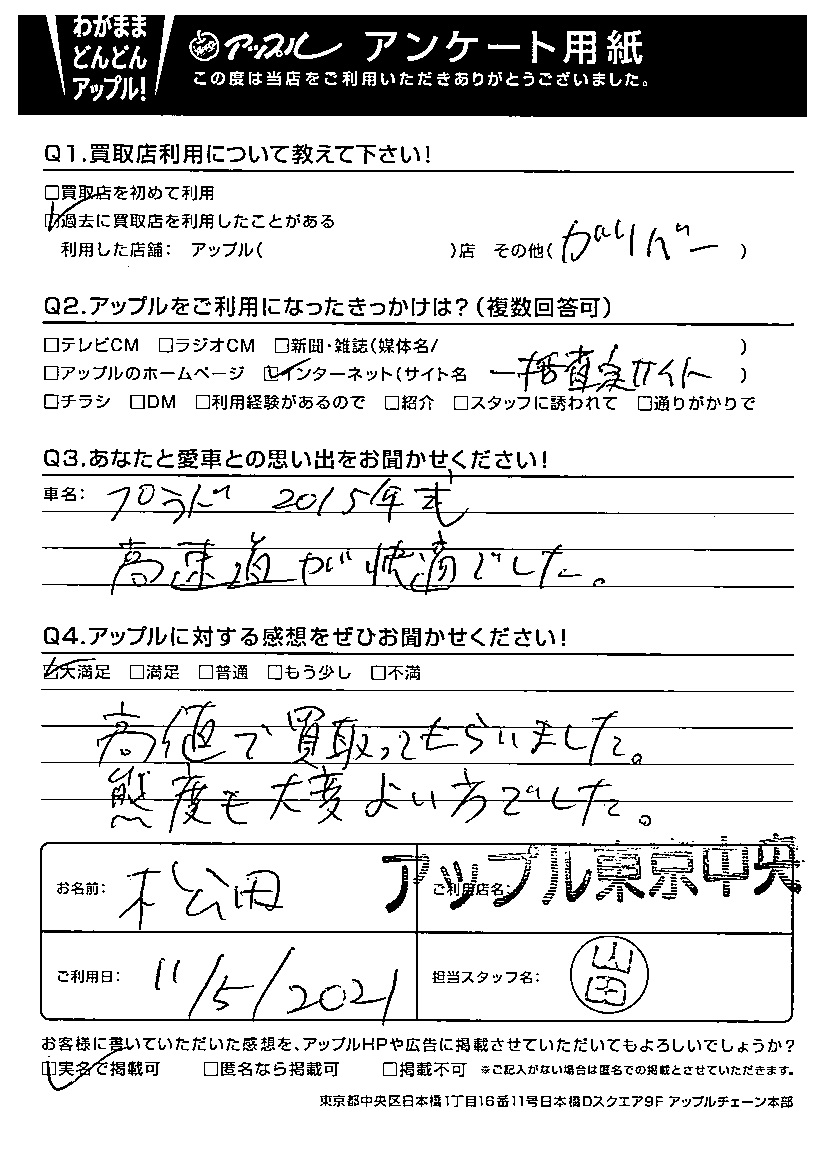 わがまま
どんどん
アップル!
アップル アンケート用紙
この度は当店をご利用いただきありがとうございました。
Q1.買取店利用について教えて下さい!
□買取店を初めて利用
☑過去に買取店を利用したことがある
利用した店舗: アップル( )店 その他(ガリバー)
Q2.アップルをご利用になったきっかけは?(複数回答可)
□テレビCM □ラジオCM □新聞・雑誌(媒体名/ )
□アップルのホームページ ☑インターネット(サイト名 一括査定サイト)
□チラシ □DM □利用経験があるので □紹介 □スタッフに誘われて □通りがかりで
Q3.あなたと愛車との思い出をお聞かせください!
車名: プラド 2015年式
高速道が快適でした。
Q4.アップルに対する感想をぜひお聞かせください!
☑大満足 □満足 □普通 □もう少し □不満
高値で買取ってもらいました。
態度も大変よい方でした。
お名前: 松田 ご利用店名: アップル東京中央
ご利用日: 11/5/2021 担当スタッフ名: 山田
お客様に書いていただいた感想を、アップルHPや広告に掲載させていただいてもよろしいでしょうか?
☑実名で掲載可 □匿名なら掲載可 □掲載不可 ※ご記入がない場合は匿名での掲載とさせていただきます。
東京都中央区日本橋1丁目16番11号日本橋Dスクエア9F アップルチェーン本部